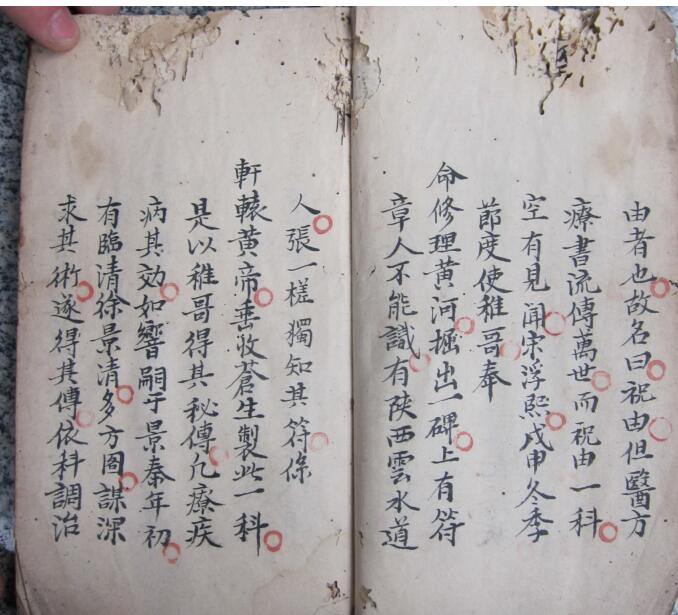 由者也故名曰祝由但醫方
療書流傳萬世而祝由一科
空有見聞宋浮熙戊申冬季
節度使稚哥奉
命修理黄河掘出一碑上有符
章人不能識有陜西雲水道
人張一槎獨知其符係
軒轅黄帝垂收蒼生製此一科
是以稚哥得其秘傳凡療疾
病其效如響嗣于景泰年初
有臨清徐景清多方圖謀深
求其術遂得其傳依科調治